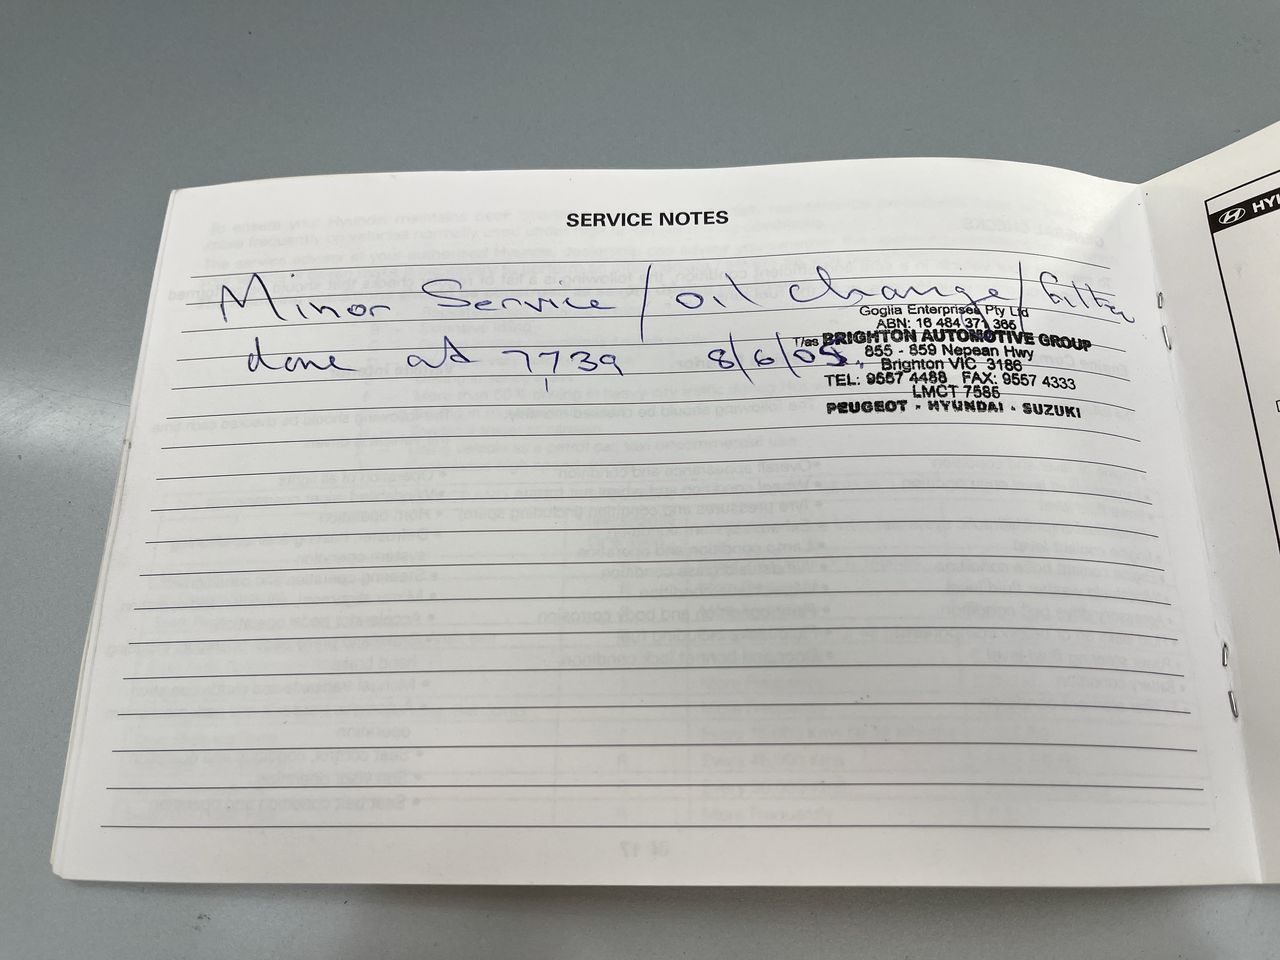 SERVICE NOTES
Minor Service / oil change / filter
done at 7739 8/6/05.
Goglia Enterprises Pty Ltd
ABN: 16 484 371 365
T/as BRIGHTON AUTOMOTIVE GROUP
855 - 859 Nepean Hwy
Brighton VIC 3186
TEL: 9557 4488 FAX: 9557 4333
LMCT 7585
PEUGEOT - HYUNDAI - SUZUKI
HYU